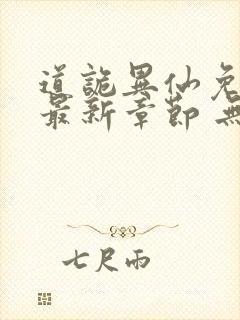 道詭異仙免
最新章節 無
七尺雨